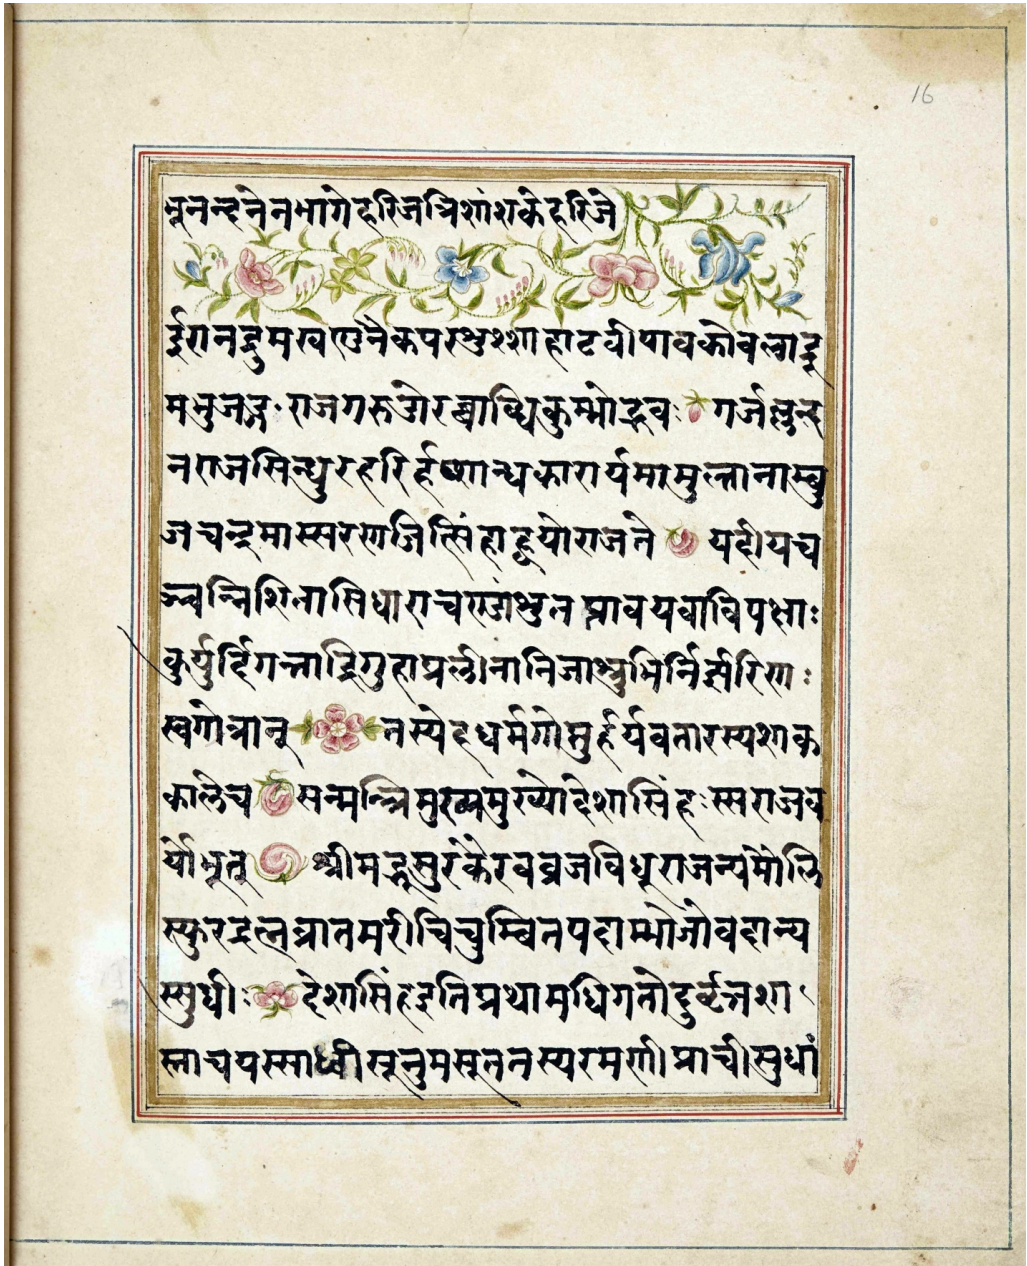 16
भूनन्दनेनभागेहरिजत्रिशांशकेहरिजे
र्इरानद्रुमखण्डनैकपरशुश्शाहाटवीपावकोबल्वाद्दू
मभुजङ्ग राजगरुडोरत्नाब्धिकुम्भोद्भवः गर्जल्लुन्द
नराजसिन्धुरहरिर्हूणान्धकारार्यमामुल्तानाम्बु
जचन्द्रमास्सरणजित्सिंहाह्वयोराजते यदीयच
ञ्चन्निशितासिधाराचण्डांशुतप्रावयवाविपक्षाः
कुर्युर्दिगन्ताद्रिगुहाप्रलीनानिजाश्रुभिर्निर्झरिणाः
स्वगोत्रान् तस्येहधर्मगोप्तुर्हर्यवतारस्यशाक
कालेच सन्मन्त्रिमुख्यमुख्योदेशासिंहःस्सराजव
र्योभूत् श्रीमद्भूसुरकैरवव्रजविधूराजन्यमौलि
स्फुरद्रत्नव्रातमरीचिचुम्बितपदाम्भोजोवदान्य
स्सुधीः देशासिंहइतिप्रथामधिगतोदुर्वृत्तशा
स्ताचयस्साध्वीसूनुमसूततस्यरमणीप्राचीसुधां